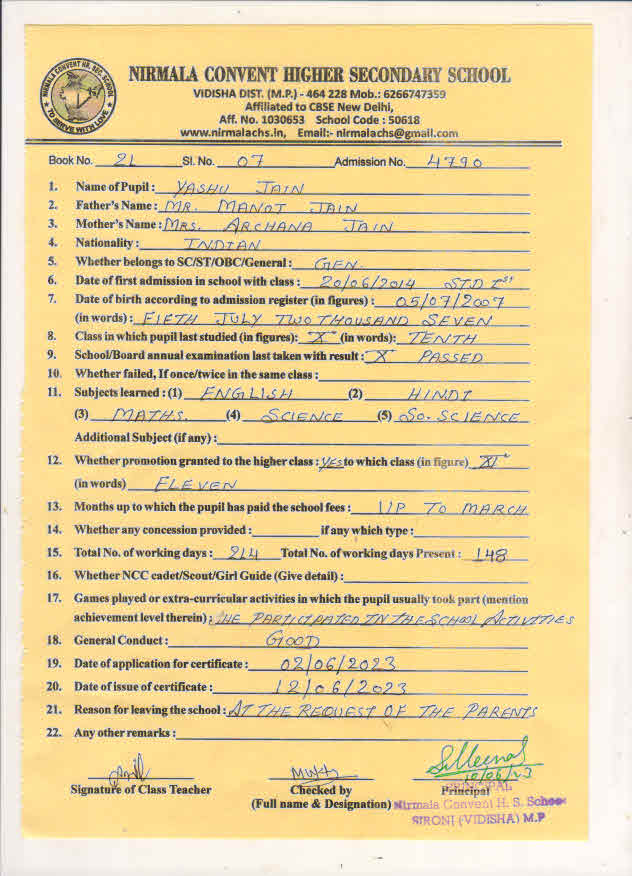 NIRMALA CONVENT HR. SEC. SCHOOL
★ TO SERVE WITH LOVE ★
NIRMALA CONVENT HIGHER SECONDARY SCHOOL
VIDISHA DIST. (M.P.) - 464 228 Mob.: 6266747359
Affiliated to CBSE New Delhi,
Aff. No. 1030653 School Code : 50618
www.nirmalachs.in, Email:- nirmalachs@gmail.com
Book No. 21 Sl. No. 07 Admission No. 4790
1. Name of Pupil : YASHU JAIN
2. Father's Name : MR. MANOJ JAIN
3. Mother's Name : MRS. ARCHANA JAIN
4. Nationality : INDIAN
5. Whether belongs to SC/ST/OBC/General : GEN.
6. Date of first admission in school with class : 20/06/2014 STD Iˢᵗ
7. Date of birth according to admission register (in figures) : 05/07/2007
(in words) : FIFTH JULY TWO THOUSAND SEVEN
8. Class in which pupil last studied (in figures): "X" (in words): TENTH
9. School/Board annual examination last taken with result : "X" PASSED
10. Whether failed, If once/twice in the same class :
11. Subjects learned : (1) ENGLISH (2) HINDI
(3) MATHS. (4) SCIENCE (5) So. SCIENCE
Additional Subject (if any) :
12. Whether promotion granted to the higher class : Yes to which class (in figure) XIᵗʰ
(in words) ELEVEN
13. Months up to which the pupil has paid the school fees : UP TO MARCH
14. Whether any concession provided : if any which type :
15. Total No. of working days : 214 Total No. of working days Present : 148
16. Whether NCC cadet/Scout/Girl Guide (Give detail) :
17. Games played or extra-curricular activities in which the pupil usually took part (mention
achievement level therein) : HE PARTICIPATED IN THE SCHOOL ACTIVITIES
18. General Conduct : GOOD
19. Date of application for certificate : 02/06/2023
20. Date of issue of certificate : 12/06/2023
21. Reason for leaving the school : AT THE REQUEST OF THE PARENTS
22. Any other remarks :
Signature of Class Teacher Checked by Principal
(Full name & Designation)
PRINCIPAL
Nirmala Convent H. S. School
SIRONJ (VIDISHA) M.P